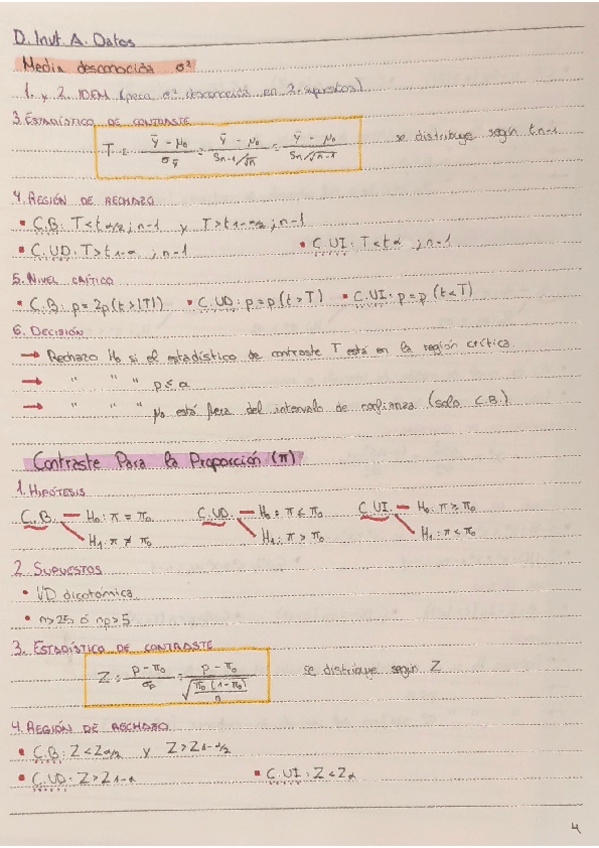 D. Inv. A. Datos
Media desconocida σ²
1. y 2. IDEM (pero σ² desconocida en 2. supuestos)
3. ESTADÍSTICO DE CONTRASTE
T = (ȳ - μ₀)/σȳ = (ȳ - μ₀)/(Sn-1/√n) = (ȳ - μ₀)/(Sn/√n-1) se distribuye según tn-1
4. REGIÓN DE RECHAZO
• C.B: T < tα/2 ; n-1 y T > t1-α/2 ; n-1
• C.UD: T > t1-α ; n-1 • C.UI: T < tα ; n-1
5. NIVEL CRÍTICO
• C.B: p = 2p(t > |T|) • C.UD: p = p(t > T) • C.UI: p = p(t < T)
6. DECISIÓN
→ Rechazo H₀ si el estadístico de contraste T está en la región crítica.
→ " " " p ≤ α
→ " " " μ₀ está fuera del intervalo de confianza (solo C.B.)
Contraste Para la Proporción (π)
1. HIPÓTESIS
C.B. — H₀: π = π₀ C.UD. — H₀: π ≤ π₀ C.UI. — H₀: π ≥ π₀
H₁: π ≠ π₀ H₁: π > π₀ H₁: π < π₀
2. SUPUESTOS
• VD dicotómica
• n > 25 ó np > 5
3. ESTADÍSTICO DE CONTRASTE
Z = (p - π₀)/σp = (p - π₀)/√(π₀(1-π₀)/n) se distribuye según Z
4. REGIÓN DE RECHAZO
• C.B: Z < Zα/2 y Z > Z1-α/2
• C.UD: Z > Z1-α • C.UI: Z < Zα
4